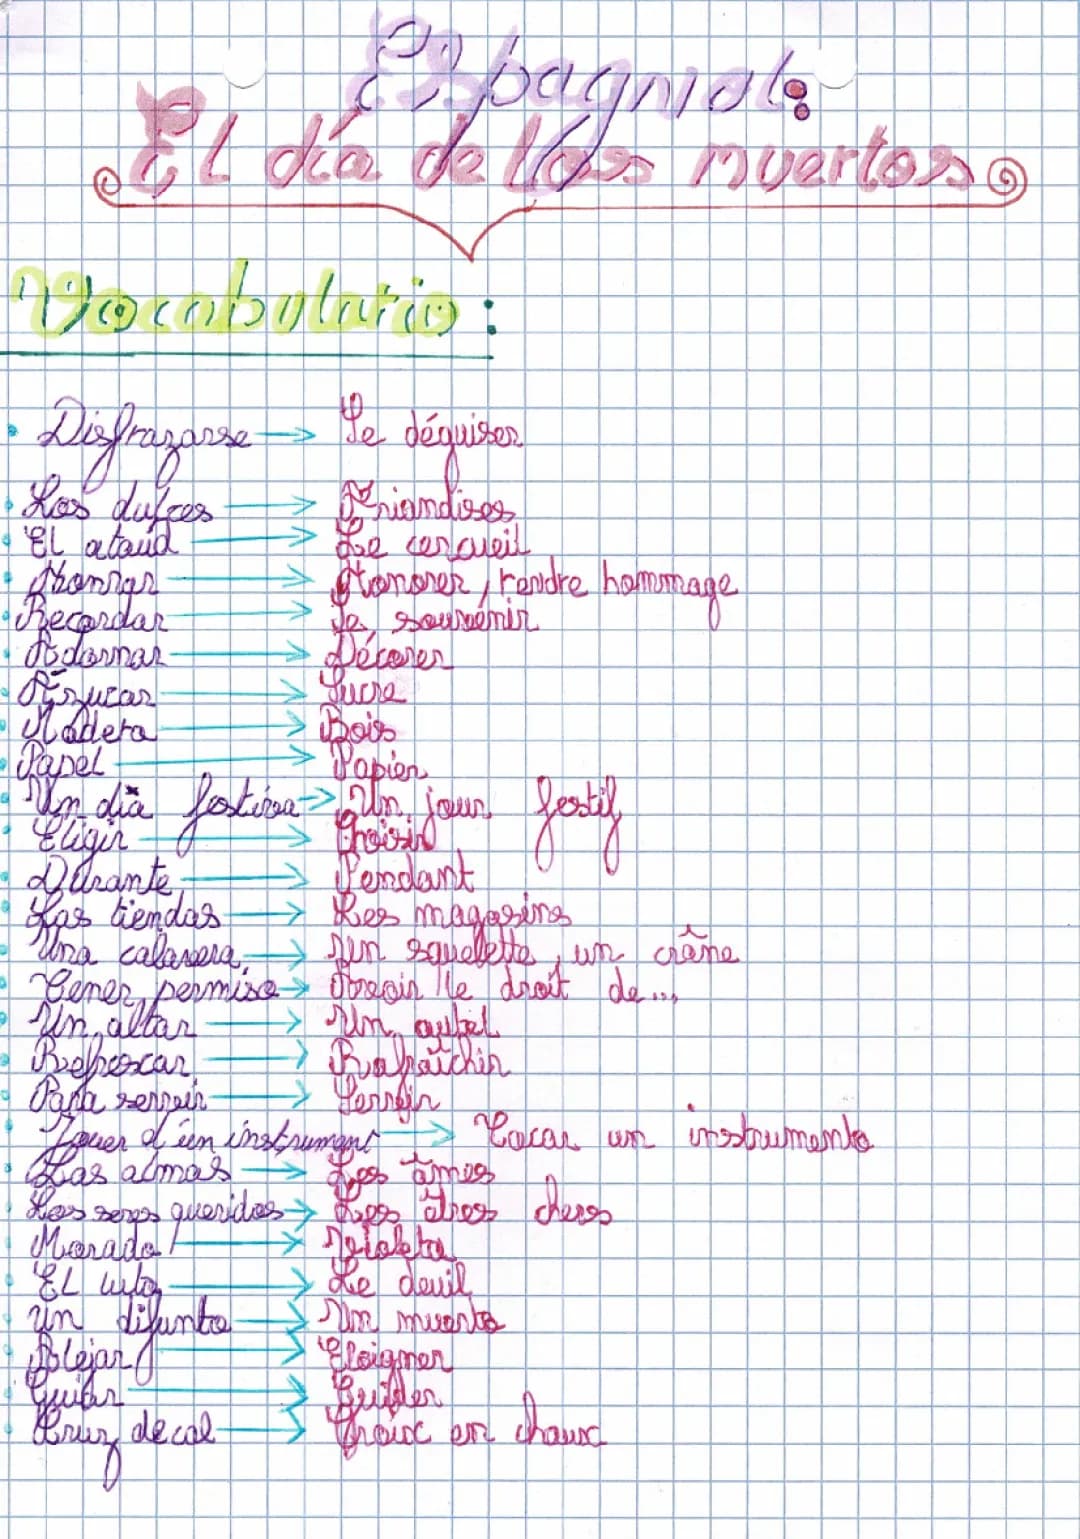 Espagnol:
El día de los muertos
Vocabulario:
Disfrazarse → Se déguiser
Los dulces → Friandises
El ataúd → Le cercueil
Honrar → Honorer, rendre hommage
Recordar → Se souvenir
Adornar → Décorer
Azucar → Sucre
Madera → Bois
Papel → Papier
Un día festiva → Un jour festif
Eligir → Choisir
Durante → Pendant
Las tiendas → Les magasins
Una calavera → Un squelette, un crâne
Tener permiso → Avoir le droit de...
Un altar → Un autel
Refrescar → Rafraîchir
Para servir → Servir
Jouer d'un instrument → Tocar un instrumento
Las almas → Les âmes
Los seres queridos → Les êtres chers
Morado → Violeta
El luto → Le deuil
Un difunto → Un muerto
Alejar → Eloigner
Guiar → Guider
Cruz de cal → Croix en chaux